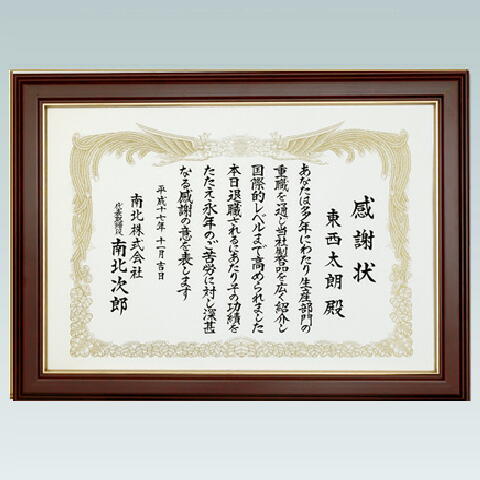 感謝状
東西太朗殿
あなたは多年にわたり生産部門の
重職を通し当社製品を広く紹介し
国際的レベルまで高められました
本日退職されるにあたりその功績を
たたえ永年のご苦労に対し深甚
なる感謝の意を表します
平成十七年十一月吉日
南北株式会社
代表取締役 南北次郎